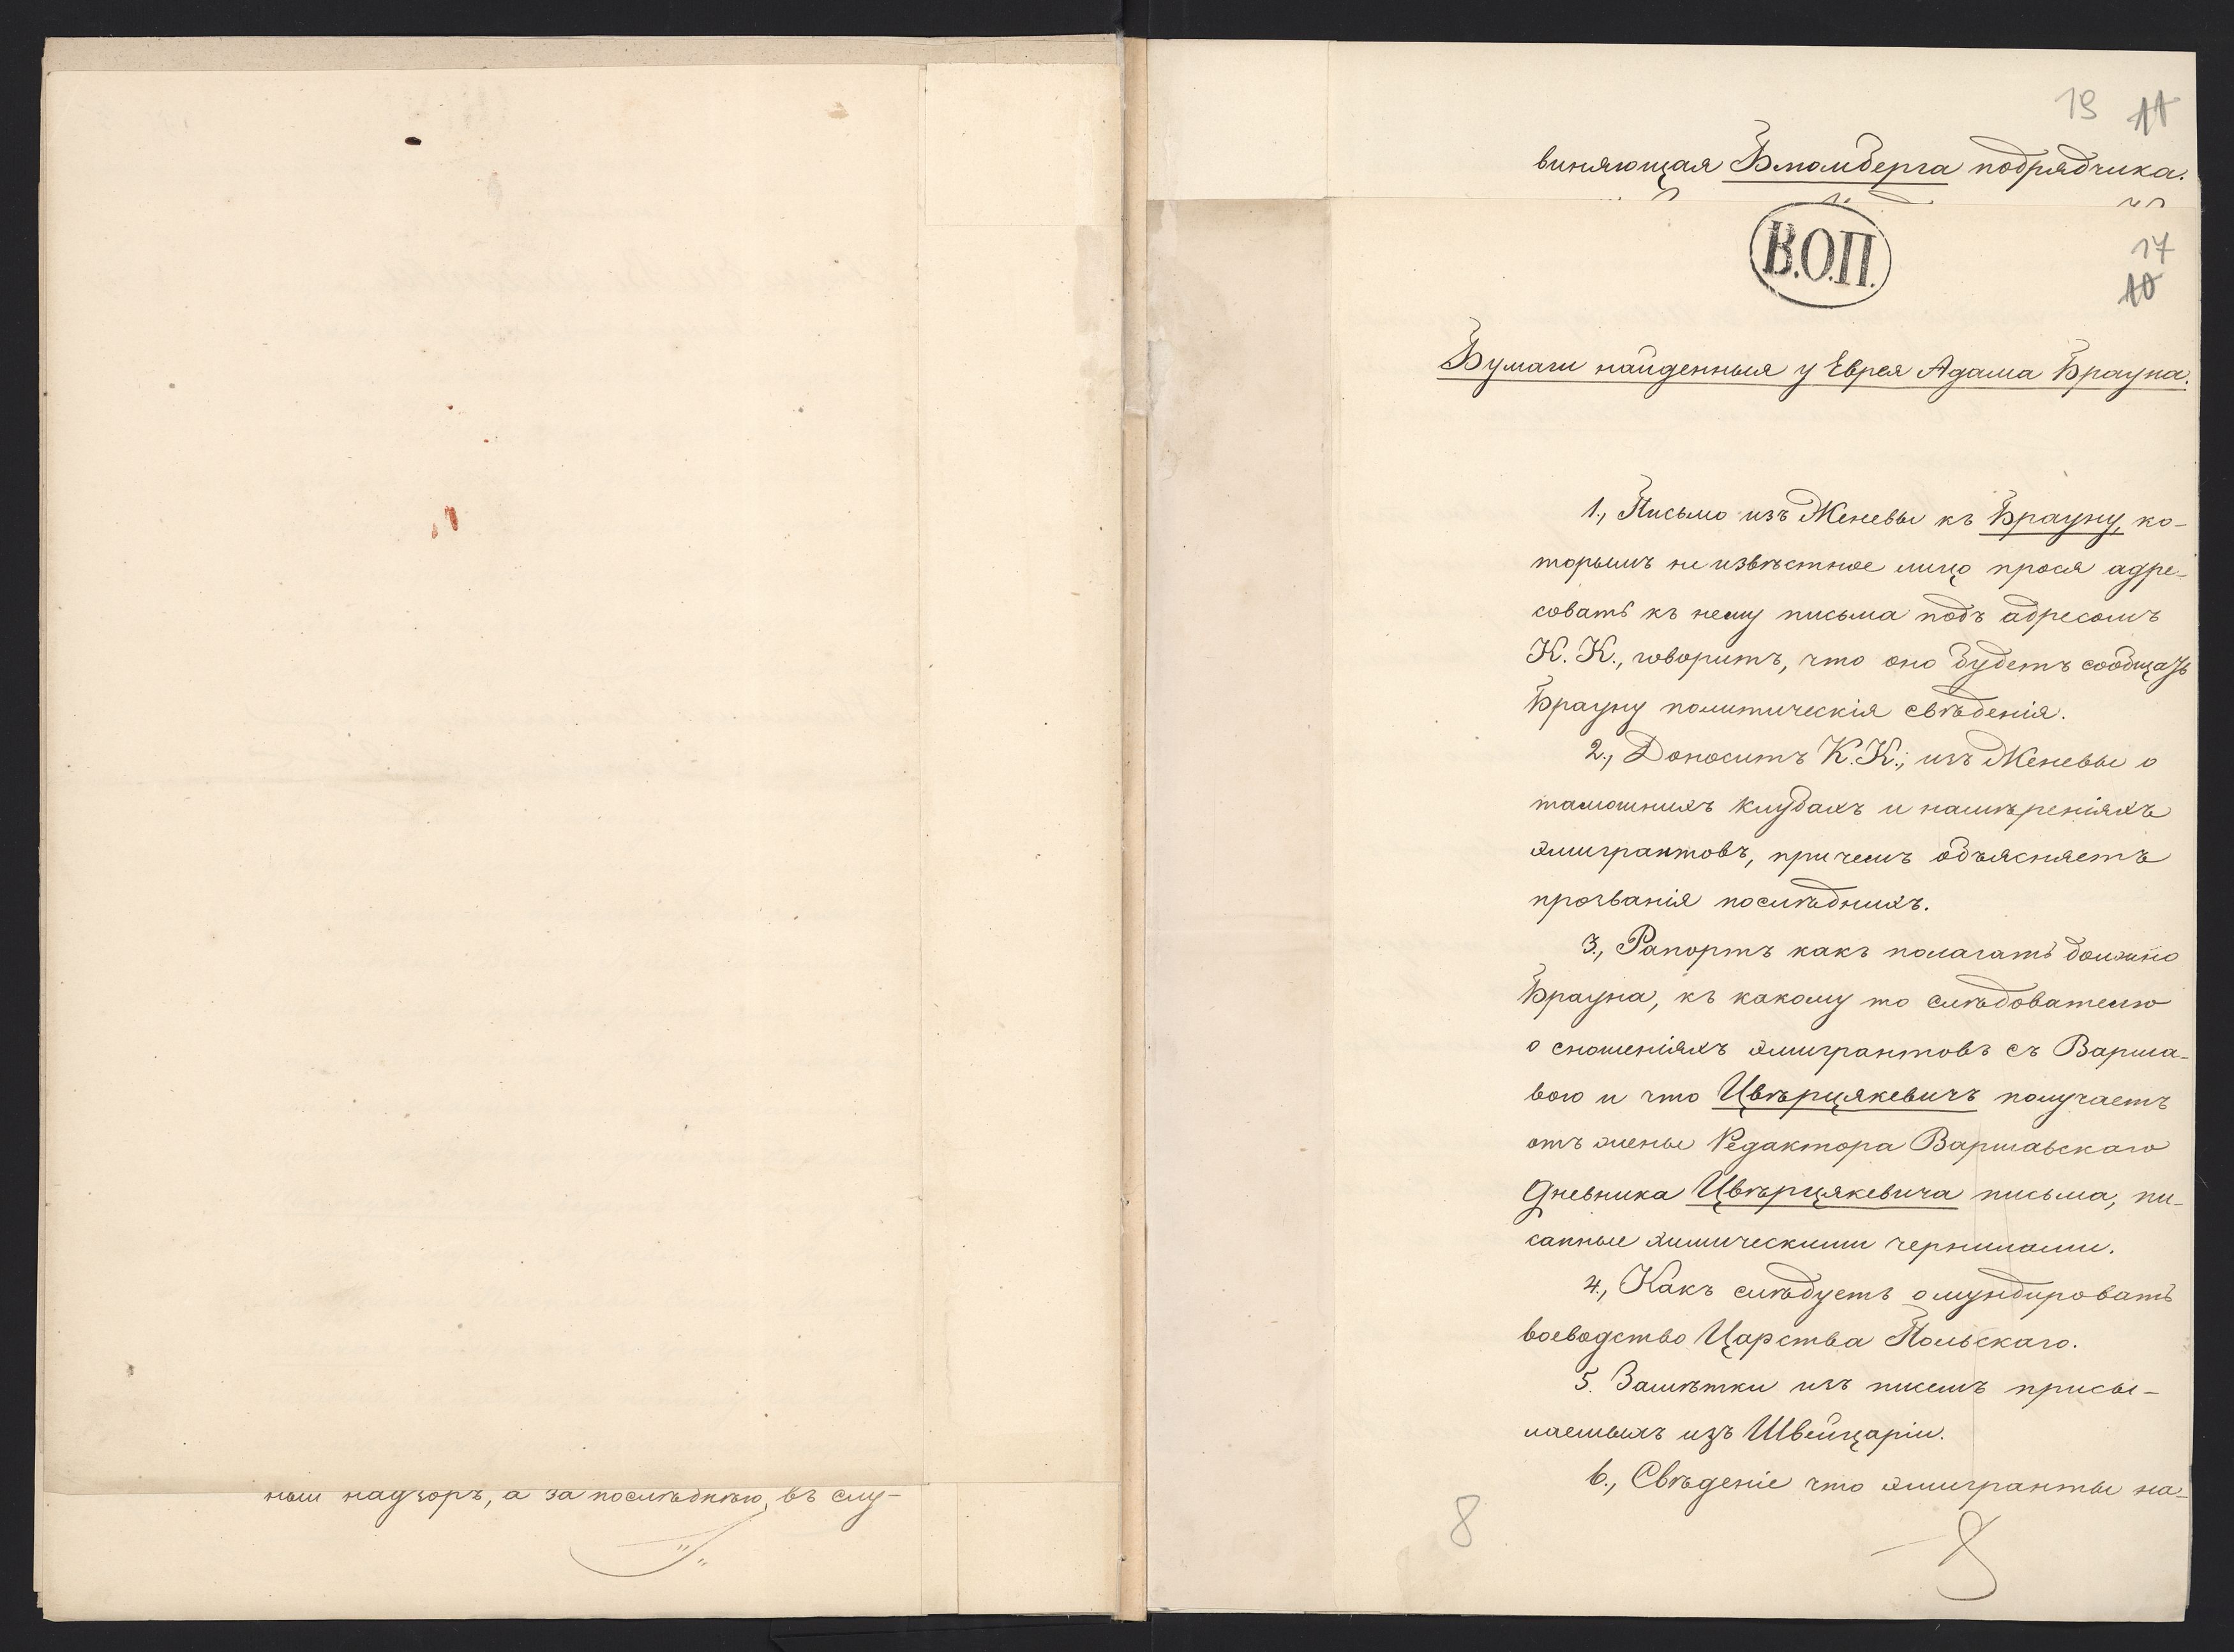 ный надзоръ, а за послѣднею, въ слу-
19 11
виняющая Бломберга подрядчика.
В.О.П.
17
10
Бумаги найденныя у Еврея Адама Брауна.
1., Письмо изъ Женевы къ Брауну, ко-
торымъ неизвѣстное лицо прося адре-
совать къ нему письма подъ адресомъ
К. К., говоритъ, что оно будетъ сообщать
Брауну политическія свѣденія.
2., Доноситъ К. К., изъ Женевы о
тамошнихъ клубахъ и намѣреніяхъ
эмигрантовъ, причемъ объясняетъ
прозванія послѣднихъ.
3., Рапортъ какъ полагать должно
Брауна, къ какому то слѣдователю
о сношеніяхъ эмигрантовъ съ Варша-
вою и что Цвѣрцякевичъ получаетъ
отъ жены Редактора Варшавскаго
Дневника Цвѣрцякевича письма, пи-
санные химическими чернилами.
4., Какъ слѣдуетъ омундировать
воеводство Царства Польскаго.
5. Замѣтки изъ писемъ присы-
лаемыхъ изъ Швейцаріи.
6., Свѣденіе что эмигранты на-
8
8